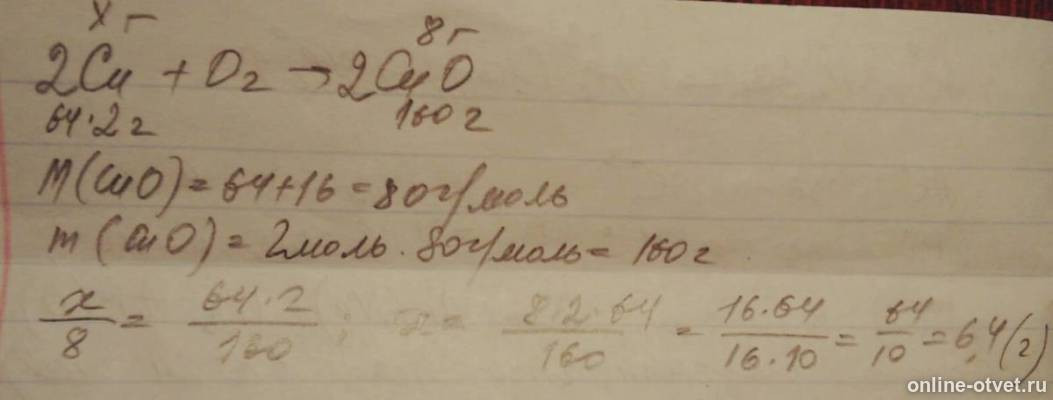 x г 8 г
2Cu + O₂ → 2CuO
64·2 г 160 г
M(CuO) = 64+16 = 80 г/моль
m(CuO) = 2 моль · 80 г/моль = 160 г
x/8 = 64·2/160 ; x = 8·2·64/160 = 16·64/16·10 = 64/10 = 6,4 (г)
online-otvet.ru